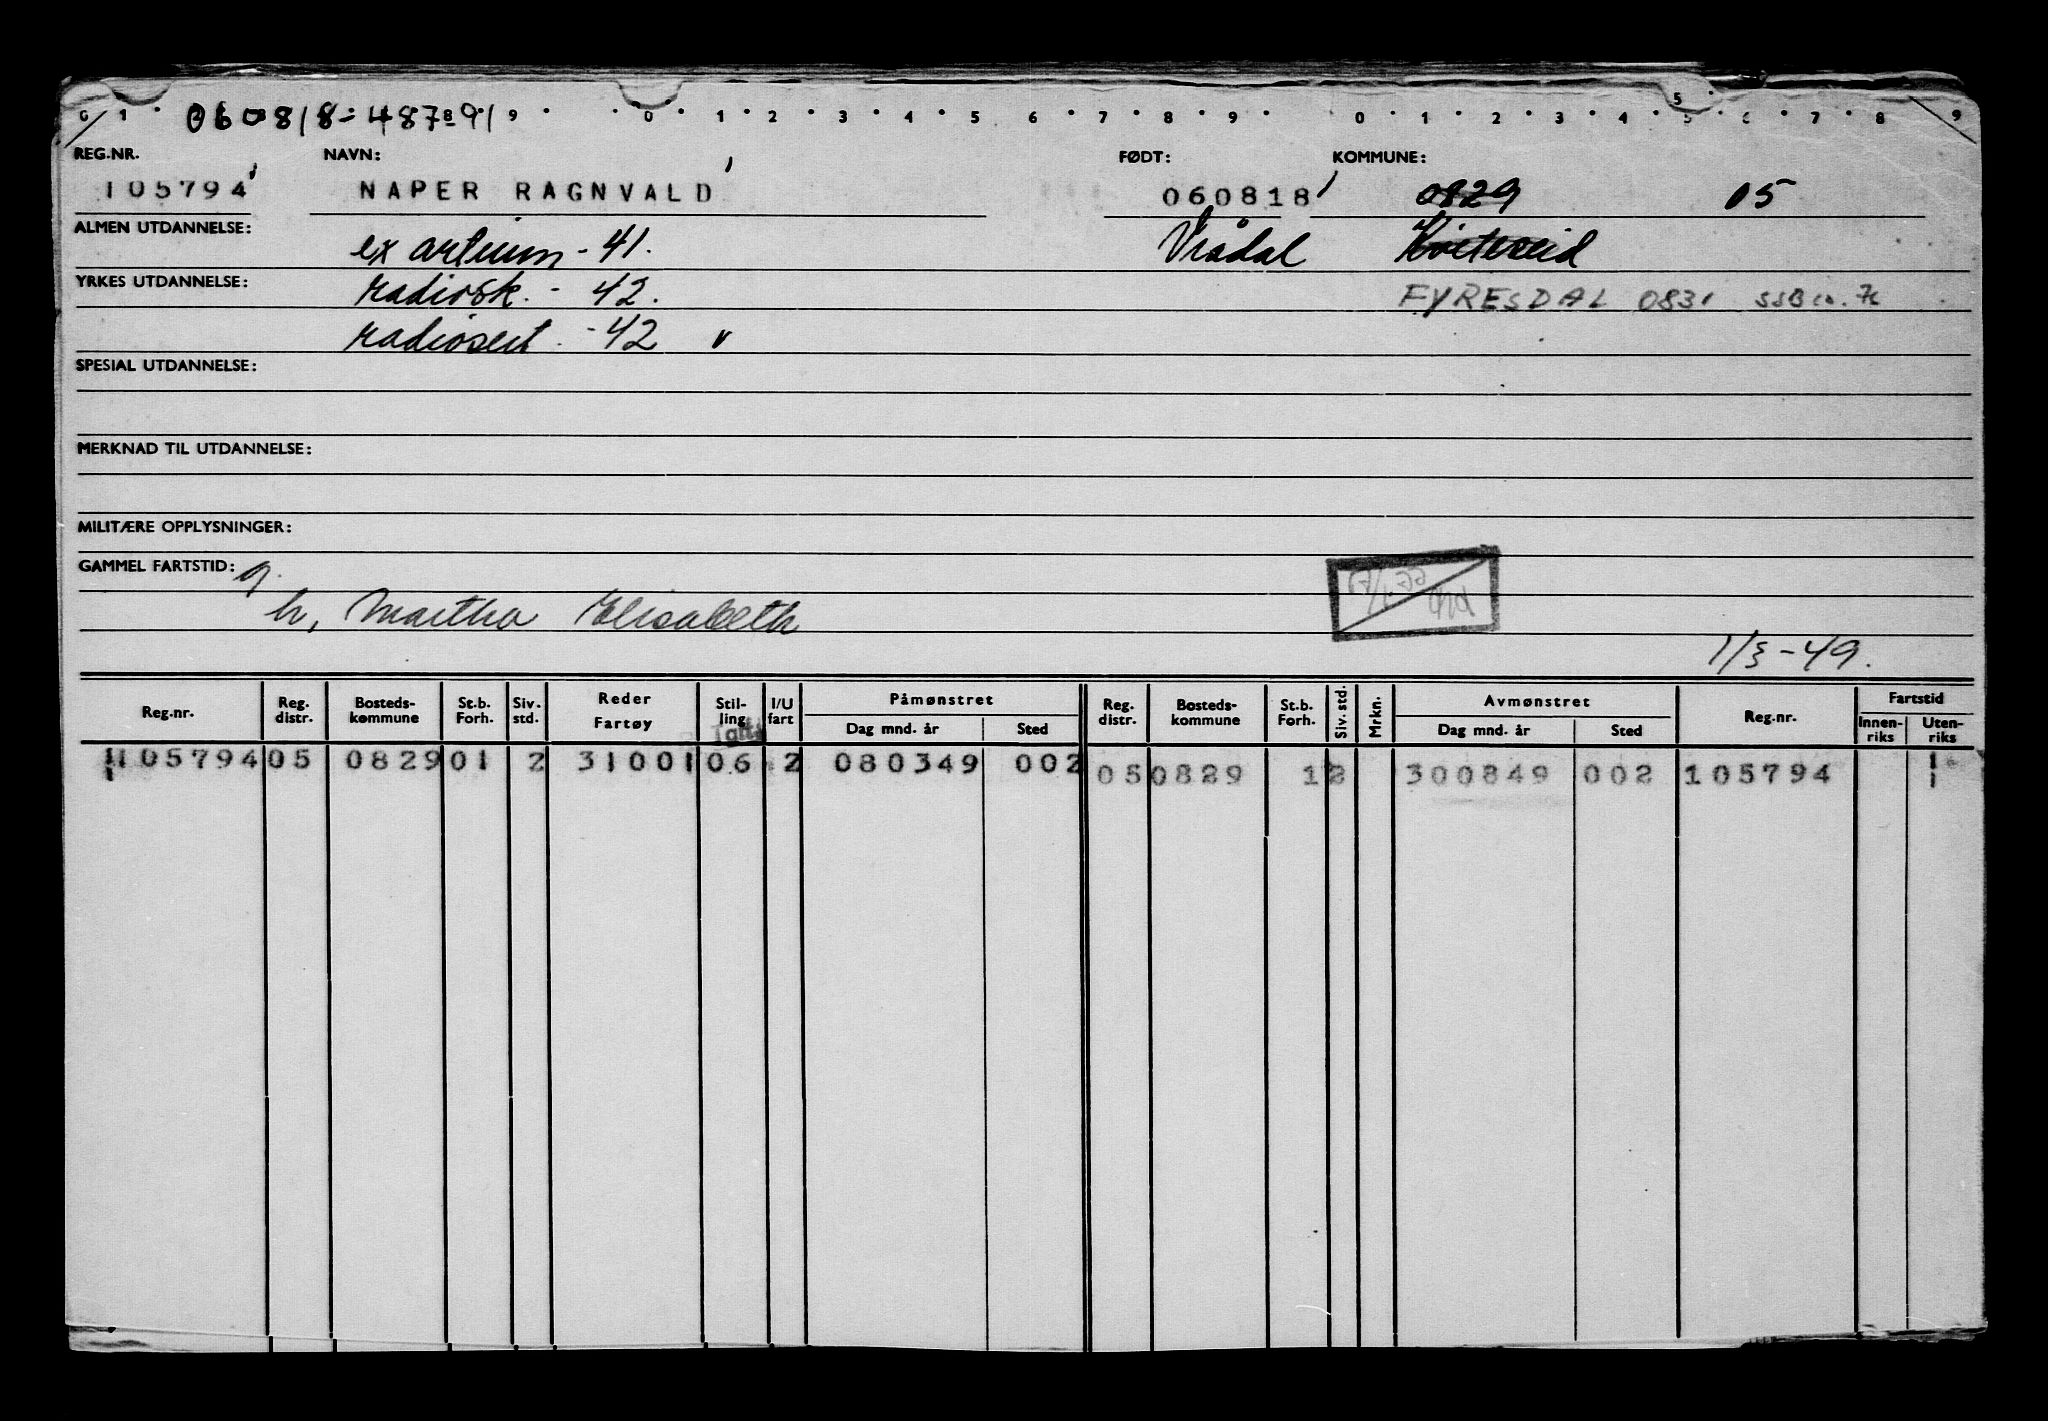 060818-48791
0 1 9 0 1 2 3 4 5 6 7 8 9 0 1 2 3 4 5 6 7 8 9
REG.NR. NAVN: FØDT: KOMMUNE:
105794 NAPER RAGNVALD 060818 0829 05
ALMEN UTDANNELSE: ex artium -41. Vrådal Kviteseid
YRKES UTDANNELSE: radiosk. - 42. FYRESDAL 0831
radiosert. -42
SPESIAL UTDANNELSE:
MERKNAD TIL UTDANNELSE:
MILITÆRE OPPLYSNINGER:
GAMMEL FARTSTID: g.
h, Martha Elisabeth
1/3-49.
Reg.nr. Reg. distr. Bosteds-kommune St.b. Forh. Siv. std. Reder Fartøy Stil-ling I/U fart Påmønstret Dag mnd. år Sted Reg. distr. Bosteds-kommune St.b. Forh. Siv. std. Mrkn. Avmønstret Dag mnd. år Sted Reg.nr. Fartstid Innen-riks Uten-riks
105794 05 0829 01 2 31001 06 2 080349 002 05 0829 1 2 300849 002 105794